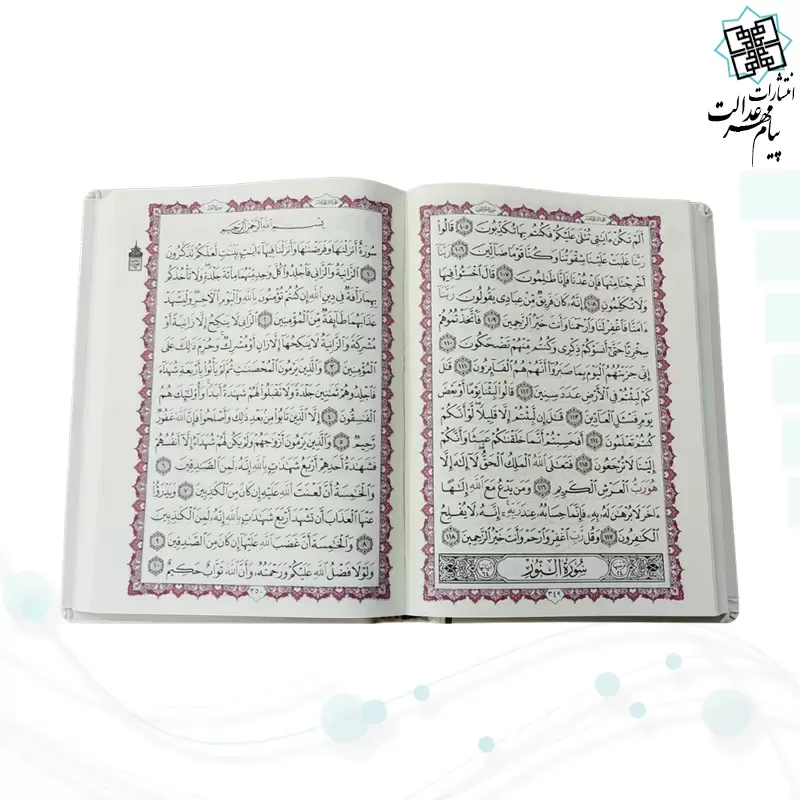 انتشارات
پیام مهر عدالت
أَلَمْ تَكُنْ ءَايَٰتِي تُتْلَىٰ عَلَيْكُمْ فَكُنتُم بِهَا تُكَذِّبُونَ ١٠٥ قَالُوا۟
رَبَّنَا غَلَبَتْ عَلَيْنَا شِقْوَتُنَا وَكُنَّا قَوْمًا ضَآلِّينَ ١٠٦ رَبَّنَآ
أَخْرِجْنَا مِنْهَا فَإِنْ عُدْنَا فَإِنَّا ظَٰلِمُونَ ١٠٧ قَالَ ٱخْسَـُٔوا۟ فِيهَا
وَلَا تُكَلِّمُونِ ١٠٨ إِنَّهُۥ كَانَ فَرِيقٌ مِّنْ عِبَادِي يَقُولُونَ رَبَّنَآ
ءَامَنَّا فَٱغْفِرْ لَنَا وَٱرْحَمْنَا وَأَنتَ خَيْرُ ٱلرَّٰحِمِينَ ١٠٩ فَٱتَّخَذْتُمُوهُمْ
سِخْرِيًّا حَتَّىٰٓ أَنسَوْكُمْ ذِكْرِي وَكُنتُم مِّنْهُمْ تَضْحَكُونَ ١١٠
إِنِّي جَزَيْتُهُمُ ٱلْيَوْمَ بِمَا صَبَرُوٓا۟ أَنَّهُمْ هُمُ ٱلْفَآئِزُونَ ١١١ قَٰلَ
كَمْ لَبِثْتُمْ فِي ٱلْأَرْضِ عَدَدَ سِنِينَ ١١٢ قَالُوا۟ لَبِثْنَا يَوْمًا أَوْ بَعْضَ
يَوْمٍ فَسْـَٔلِ ٱلْعَآدِّينَ ١١٣ قَٰلَ إِن لَّبِثْتُمْ إِلَّا قَلِيلًا لَّوْ أَنَّكُمْ
كُنتُمْ تَعْلَمُونَ ١١٤ أَفَحَسِبْتُمْ أَنَّمَا خَلَقْنَٰكُمْ عَبَثًا وَأَنَّكُمْ
إِلَيْنَا لَا تُرْجَعُونَ ١١٥ فَتَعَٰلَى ٱللَّهُ ٱلْمَلِكُ ٱلْحَقُّ لَآ إِلَٰهَ إِلَّا
هُوَ رَبُّ ٱلْعَرْشِ ٱلْكَرِيمِ ١١٦ وَمَن يَدْعُ مَعَ ٱللَّهِ إِلَٰهًا
ءَاخَرَ لَا بُرْهَٰنَ لَهُۥ بِهِۦ فَإِنَّمَا حِسَابُهُۥ عِندَ رَبِّهِۦٓ إِنَّهُۥ لَا يُفْلِحُ
ٱلْكَٰفِرُونَ ١١٧ وَقُل رَّبِّ ٱغْفِرْ وَٱرْحَمْ وَأَنتَ خَيْرُ ٱلرَّٰحِمِينَ ١١٨
سُورَةُ ٱلنُّورِ
٣٤٩
بِسْمِ ٱللَّهِ ٱلرَّحْمَٰنِ ٱلرَّحِيمِ
سُورَةٌ أَنزَلْنَٰهَا وَفَرَضْنَٰهَا وَأَنزَلْنَا فِيهَآ ءَايَٰتٍۭ بَيِّنَٰتٍ لَّعَلَّكُمْ تَذَكَّرُونَ
١ ٱلزَّانِيَةُ وَٱلزَّانِي فَٱجْلِدُوا۟ كُلَّ وَٰحِدٍ مِّنْهُمَا مِا۟ئَةَ جَلْدَةٍ وَلَا تَأْخُذْكُم
بِهِمَا رَأْفَةٌ فِي دِينِ ٱللَّهِ إِن كُنتُمْ تُؤْمِنُونَ بِٱللَّهِ وَٱلْيَوْمِ ٱلْءَاخِرِ وَلْيَشْهَدْ
عَذَابَهُمَا طَآئِفَةٌ مِّنَ ٱلْمُؤْمِنِينَ ٢ ٱلزَّانِي لَا يَنكِحُ إِلَّا زَانِيَةً أَوْ
مُشْرِكَةً وَٱلزَّانِيَةُ لَا يَنكِحُهَآ إِلَّا زَانٍ أَوْ مُشْرِكٌ وَحُرِّمَ ذَٰلِكَ عَلَى
ٱلْمُؤْمِنِينَ ٣ وَٱلَّذِينَ يَرْمُونَ ٱلْمُحْصَنَٰتِ ثُمَّ لَمْ يَأْتُوا۟ بِأَرْبَعَةِ شُهَدَآءَ
فَٱجْلِدُوهُمْ ثَمَٰنِينَ جَلْدَةً وَلَا تَقْبَلُوا۟ لَهُمْ شَهَٰدَةً أَبَدًا وَأُو۟لَٰٓئِكَ هُمُ
ٱلْفَٰسِقُونَ ٤ إِلَّا ٱلَّذِينَ تَابُوا۟ مِنۢ بَعْدِ ذَٰلِكَ وَأَصْلَحُوا۟ فَإِنَّ ٱللَّهَ غَفُورٌ
رَّحِيمٌ ٥ وَٱلَّذِينَ يَرْمُونَ أَزْوَٰجَهُمْ وَلَمْ يَكُن لَّهُمْ شُهَدَآءُ إِلَّآ أَنفُسُهُمْ
فَشَهَٰدَةُ أَحَدِهِمْ أَرْبَعُ شَهَٰدَٰتٍۭ بِٱللَّهِ إِنَّهُۥ لَمِنَ ٱلصَّٰدِقِينَ ٦
وَٱلْخَٰمِسَةُ أَنَّ لَعْنَتَ ٱللَّهِ عَلَيْهِ إِن كَانَ مِنَ ٱلْكَٰذِبِينَ ٧ وَيَدْرَؤُا۟
عَنْهَا ٱلْعَذَابَ أَن تَشْهَدَ أَرْبَعَ شَهَٰدَٰتٍۭ بِٱللَّهِ إِنَّهُۥ لَمِنَ ٱلْكَٰذِبِينَ
٨ وَٱلْخَٰمِسَةَ أَنَّ غَضَبَ ٱللَّهِ عَلَيْهَآ إِن كَانَ مِنَ ٱلصَّٰدِقِينَ ٩
وَلَوْلَا فَضْلُ ٱللَّهِ عَلَيْكُمْ وَرَحْمَتُهُۥ وَأَنَّ ٱللَّهَ تَوَّابٌ حَكِيمٌ ١٠
٣٥٠